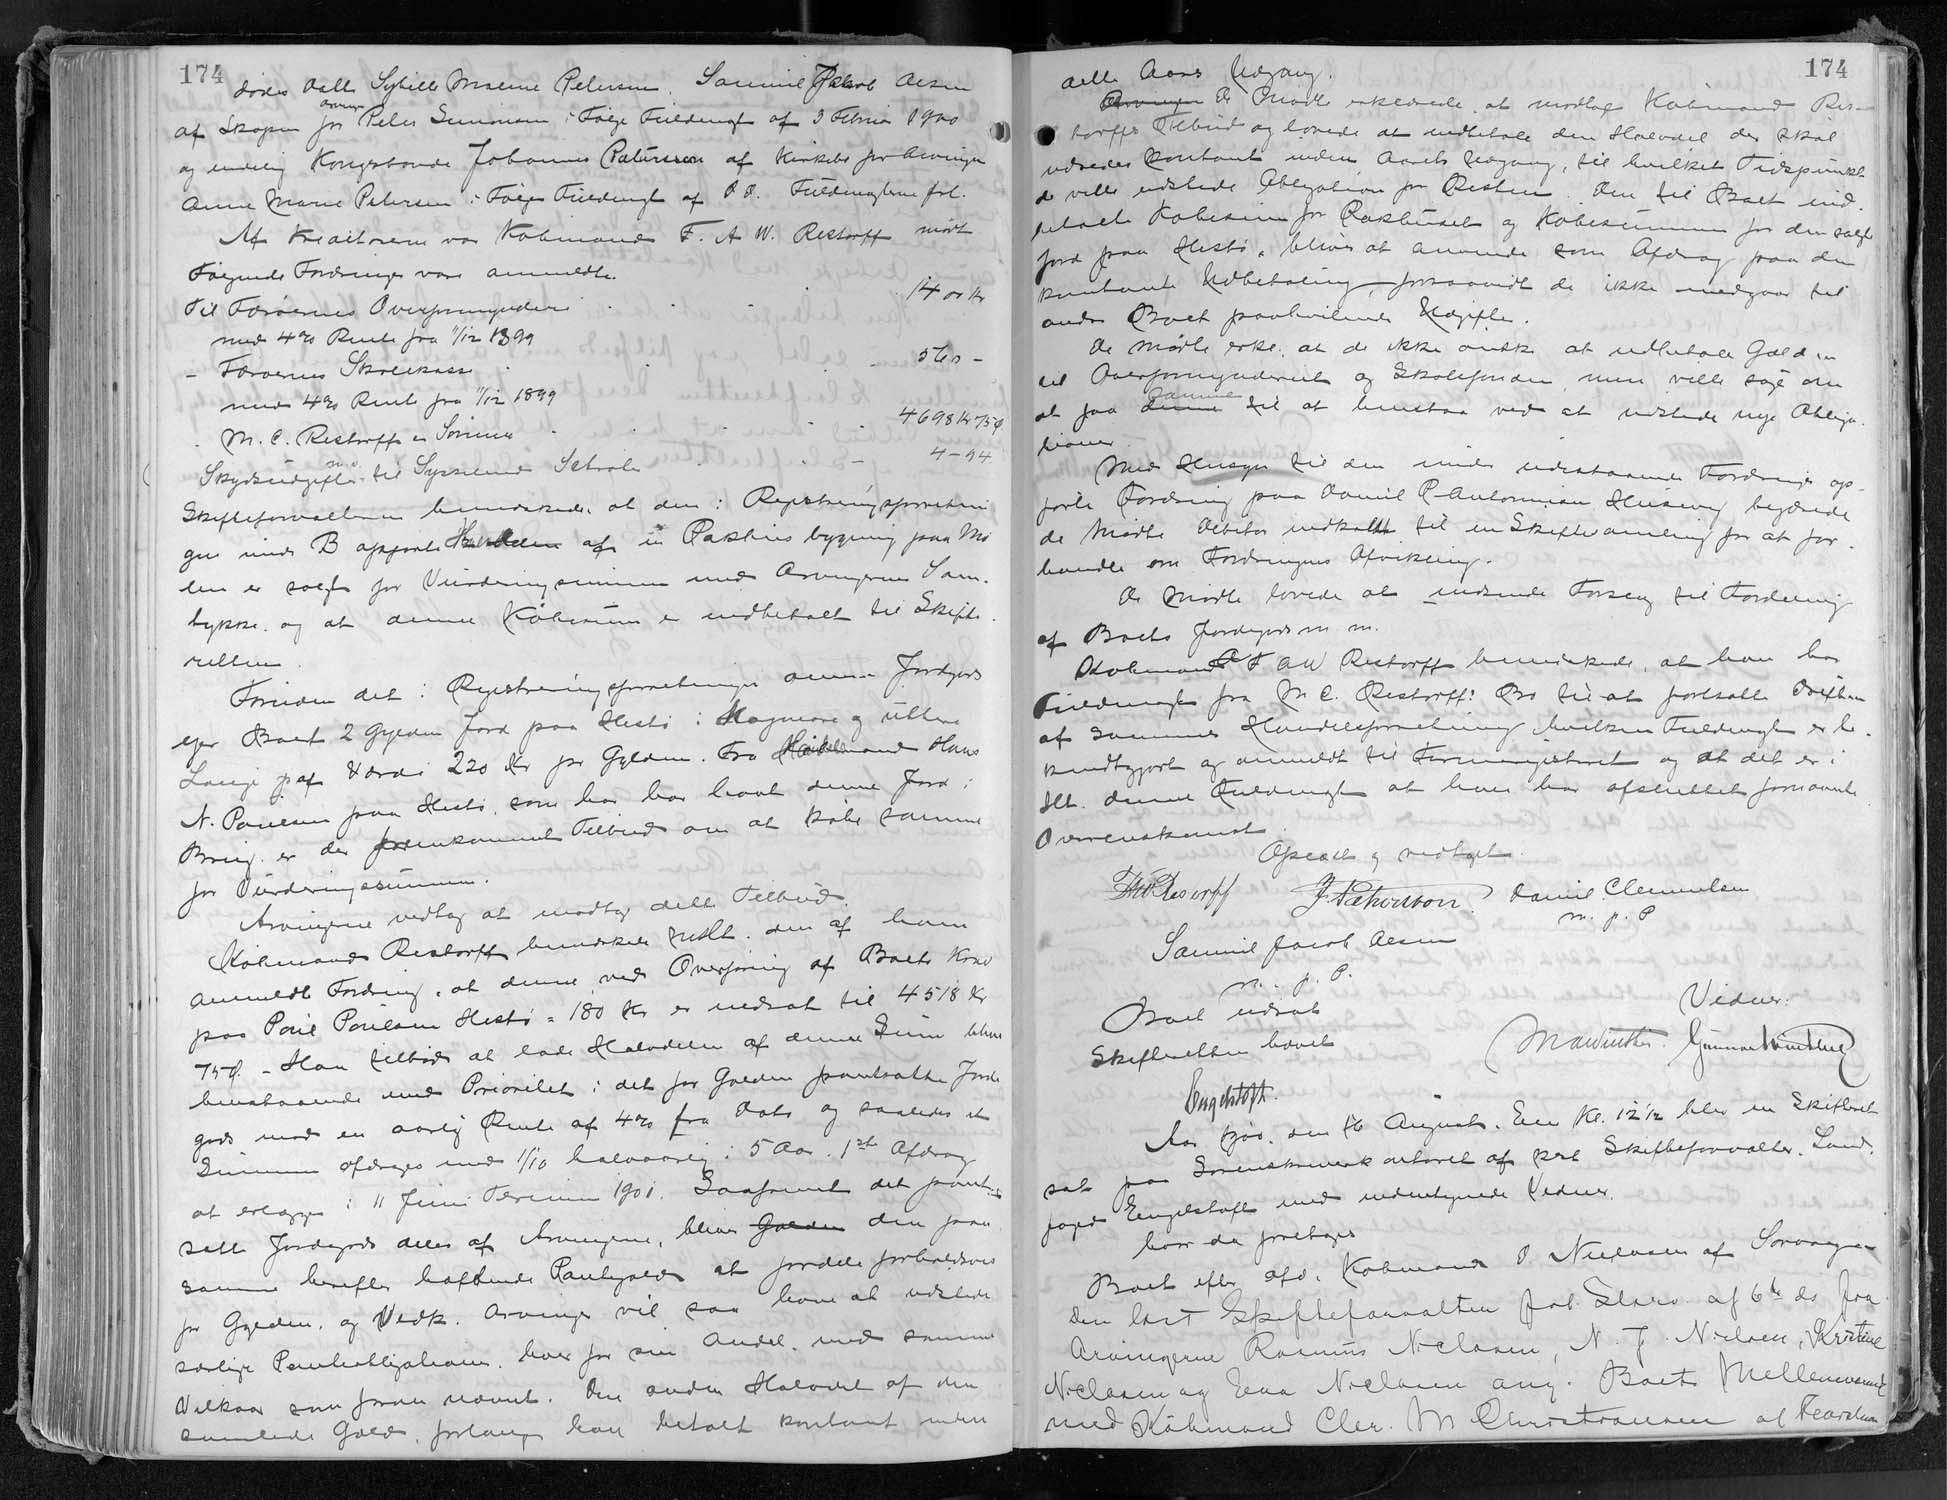 174
døde Datter Sybille Malene Petersen, Samuel Jakob Olsen
af Skopen for Arving Peter Simonsen i Følge Fuldmagt af 3 Februar 1900
og endelig Kongsbonde Johannes Patursson af Kirkebø for Arvingen
Anne Marie Petersen i Følge Fuldmagt af D.D. Fuldmagterne frl.
Af Kreditorerne var Købmand F. A. W. Restorff mødt
Følgende Fordringer vare anmeldte.
Til Færøernes Overformynderi . . . 1400 Kr
med 4% Rente fra 11/12 1899
- Færøernes Skolekasse . . . 560 -
med 4% Rente fra 11/12 1899
- M. C. Restorff & Sønner . . . 4698 Kr 75 Ø
Skydsudgifter m.v. til Sysselmand . . . 4 - 94
Skifteforvalteren bemærkede, at den i Registreringsforretnin
gen under B opførte Halvdel af en Pakhusbygning paa Mø
len er solgt for Vurderingssummen med Arvingernes Sam-
tykke, og at denne Købesum er indbetalt til Skifte-
retten.
Foruden det i Registreringsforretningen anførte Jordgods
ejer Boet 2 Gylden Jord paa Hestø i Hagmore og uttan
Længj af Værdi 220 Kr pr Gylden. Fra Husmand Hans
N. Poulsen paa Hestø, som har har havt denne Jord i
Brug er der fremkommet Tilbud om at købe samme
for Vurderingssummen.
Arvingerne vedtog at modtage dette Tilbud.
Købmand Restorff bemærkede mht. den af ham
anmeldte Fordring, at denne ved Overføring af Boets Krav
paa Poul Poulsen Hestø = 180 Kr er nedsat til 4518 Kr
75 Ø. - Han tilbød at lade Halvdelen af denne Sum blive
henstaaende med Prioritet i det for Gælden pantsatte Jorde
gods mod en aarlig Rente af 4% fra Dato og saaledes at
Summen afdrages med 1/10 halvaarlig i 5 Aar. 1ste Afdrag
at erlægge i 11 Juni Termin 1901. Saafremt det pant-
satte Jordegods deles af Arvingerne, bliver Gælden den paa
samme herefter hæftende Pantegæld at fordele forholdsvis
pr Gylden, og Vedk. Arvinger vil saa have at udstede
særlige Panteobligationer, hver for sin Andel, med samme
Vilkaar som foran nævnt. Den anden Halvdel af den
samlede Gæld forlanger han betalt kontant inden
174
dette Aars Udgang.
Arvingerne De Mødte erklærede, at modtage Købmand Res-
torffs Tilbud og lovede at indbetale den Halvdel der skal
udredes kontant inden Aarets Udgang, til hvilket Tidspunkt
de ville udstede Obligation for Resten. Den til Boet ind-
betalte Købesum for Pakhuset og Købesummen for den solgte
Jord paa Hestø, bliver at anvende som Afdrag paa den
kontante Udbetaling, forsaavidt de ikke medgaar til
andre Boet paahvilende Udgifter.
De mødte erkl. at de ikke ønske at udbetale Gælden
til Overformynderiet og Skolefonden, men ville søge om
at faa denne samme til at henstaa ved at udstede nye Obliga-
tioner.
Med Hensyn til den under udestaaende Fordringer op-
førte Fordring paa Daniel P. Antonius Húsavig begærede
de Mødte Debitor indkaldt til en Skiftesamling for at for-
handle om Fordringens Afvikling.
De Mødte lovede at indsende Forslag til Fordeling
af Boets Jordegods m m.
Købmand F A W Restorff bemærkede, at han har
Fuldmagt fra M. C. Restorffs Bo til at fortsætte Driften
af sammes Handelsforretning hvilken Fuldmagt er be-
kendtgjort og anmeldt til Firmaregisteret og at det er i
Hht. denne Fuldmagt at han har afsluttet fornævnte
Overenskomst
Oplæst og vedtaget.
FAWRestorff J. Patursson. Daniel Clementsen
m. p. P
Samuel Jacob Olsen
m. p. P.
Boet udsat
Skifteretten hævet
Vidner:
MaWinther. Gunnar Winther
Engelstoft.
Aar 1900, den 16 August. Em Kl. 12 1/2 blev en Skifteret
sat paa Sorenskriverkontoret af kst Skifteforvalter, Land-
foged Engelstoft med undertegnede Vidner.
hvor da foretoges
Boet efter afd. Købmand O Nielsen af Sorvaag
Den kst Skifteforvalter frl. Skriv. af 6te ds fra
Arvingerne Rasmus Niclasen, N. J. Niclasen, Kristine
Niclasen og Eva Niclasen ang. Boets Mellemværende
med Købmand Clem. M Christiansen af